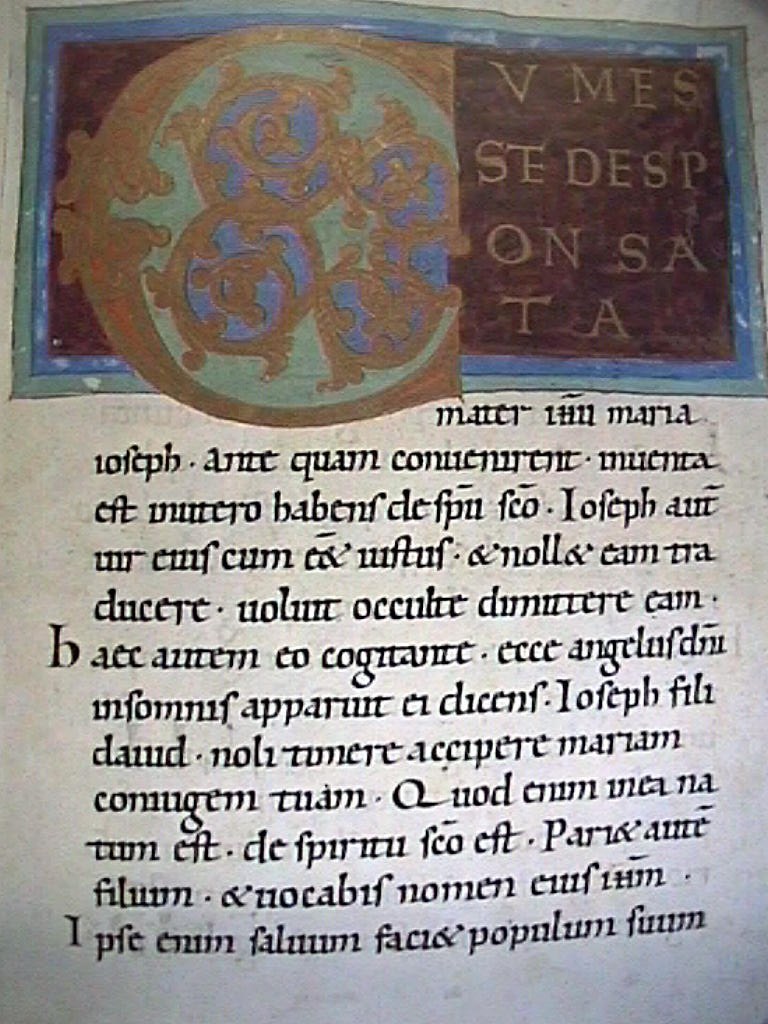 C
VMES
STE DESP
ONSA
TA
mater ihu maria
ioseph · Ante quam conuenirent · inuenta
est inutero habens de spū scō · Ioseph aut̄
uir eius cum eē& iustus · & noll& eam tra
ducere · uoluit occulte dimittere eam ·
Haec autem eo cogitante · ecce angelus dn̄i
insomnis apparuit ei dicens · Ioseph fili
dauid · noli timere accipere mariam
coniugem tuam · Quod enim inea na
tum est · de spiritu scō est · Pari& autē
filium · & uocabis nomen eius ihm̄ ·
Ipse enim saluum faci& populum suum